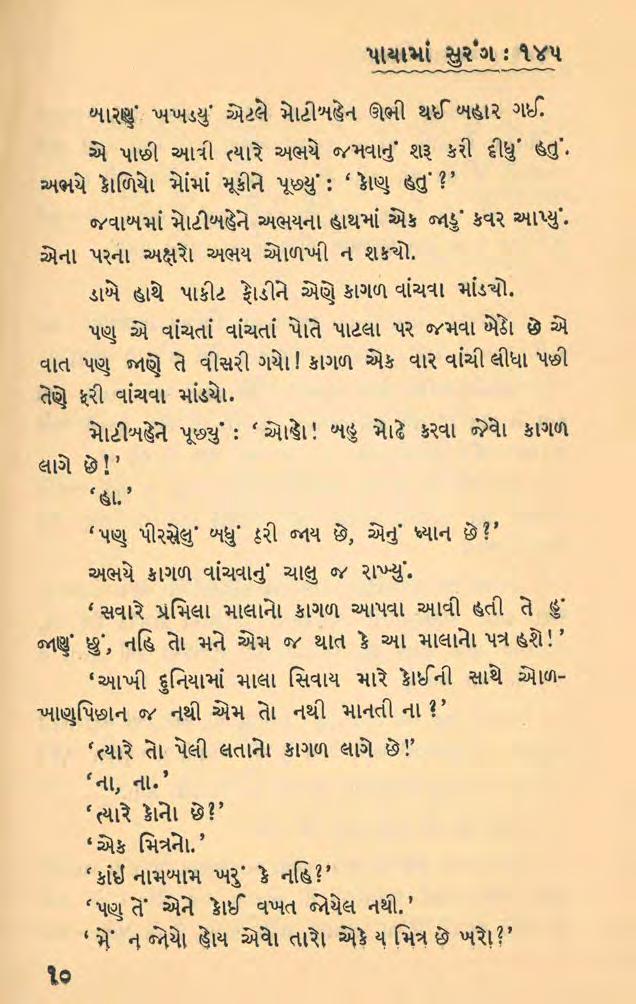 પાયામાં સુરંગ : ૧૪૫
બારણું ખખડ્યું એટલે મોટીબહેન ઊભી થઈ બહાર ગઈ.
એ પાછી આવી ત્યારે અભયે જમવાનું શરૂ કરી દીધું હતું.
અભયે કોળિયો મોંમાં મૂકીને પૂછ્યું : ‘ કોણ હતું ?’
જવાબમાં મોટીબહેને અભયના હાથમાં એક જાડું કવર આપ્યું.
એના પરના અક્ષરો અભય ઓળખી ન શક્યો.
ડાબે હાથે પાકીટ ફોડીને એણે કાગળ વાંચવા માંડ્યો.
પણ એ વાંચતાં વાંચતાં પોતે પાટલા પર જમવા બેઠો છે એ
વાત પણ જાણે તે વીસરી ગયો ! કાગળ એક વાર વાંચી લીધા પછી
તેણે ફરી વાંચવા માંડયો.
મોટીબહેને પૂછ્યું : ‘ ઓહો ! બહુ મોઢે કરવા જેવો કાગળ
લાગે છે !’
‘હા.’
‘પણ પીરસેલું બધું ઠરી જાય છે, એનું ધ્યાન છે ?’
અભયે કાગળ વાંચવાનું ચાલુ જ રાખ્યું.
‘સવારે પ્રમિલા માલાનો કાગળ આપવા આવી હતી તે હું
જાણું છું, નહિ તો મને એમ જ થાત કે આ માલાનો પત્ર હશે !’
‘આખી દુનિયામાં માલા સિવાય મારે કોઈની સાથે ઓળ-
ખાણપિછાન જ નથી એમ તો નથી માનતી ના ?’
‘ત્યારે તો પેલી લતાનો કાગળ લાગે છે !’
‘ના, ના.’
‘ત્યારે કોનો છે ?’
‘એક મિત્રનો.’
‘કાંઈ નામબામ ખરું કે નહિ ?’
‘પણ તેં એને કોઈ વખત જોયેલ નથી.’
‘મેં ન જોયો હોય એવો તારો એકે ય મિત્ર છે ખરો ?’
૧૦